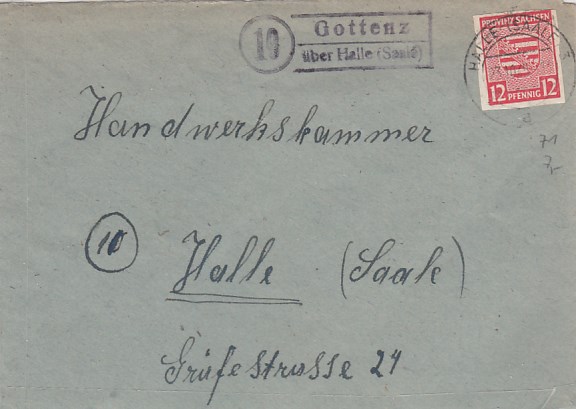 10
Gottenz
über Halle (Saale)
PROVINZ SACHSEN
12 PFENNIG 12
HALLE (SAALE)
Handwerkskammer
71
7,-
10
Halle (Saale)
Gräfestrasse 24